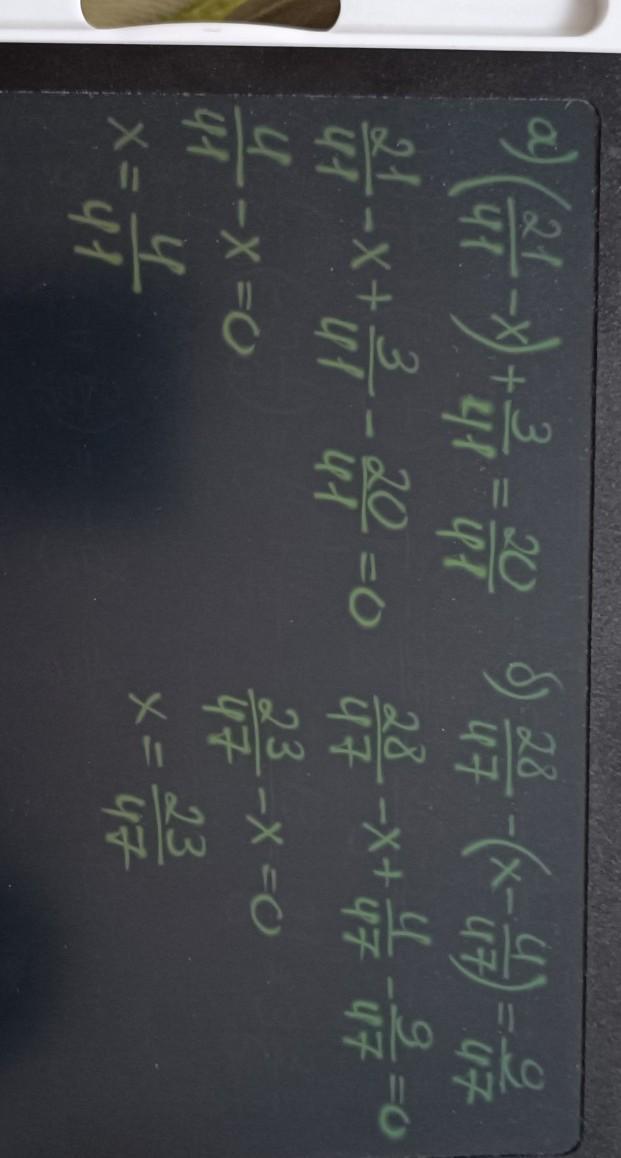 а) (21/41 - x) + 3/41 = 20/41
21/41 - x + 3/41 - 20/41 = 0
4/41 - x = 0
x = 4/41
б) 28/47 - (x - 4/47) = 9/47
28/47 - x + 4/47 - 9/47 = 0
23/47 - x = 0
x = 23/47